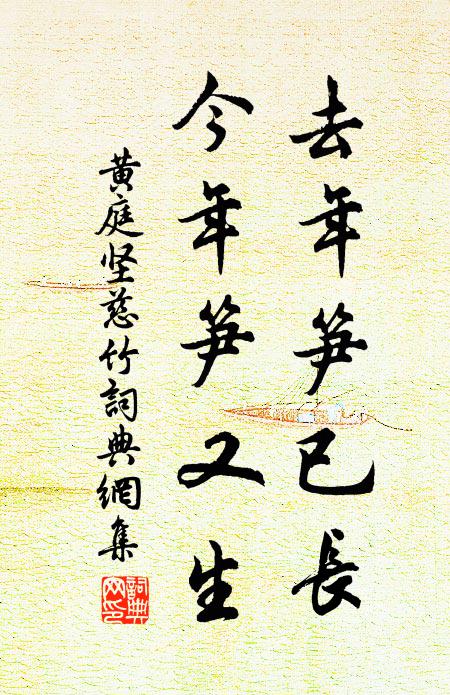 去年笋已長
今年笋又生
黄庭坚慈竹詞典網集
詞典網印